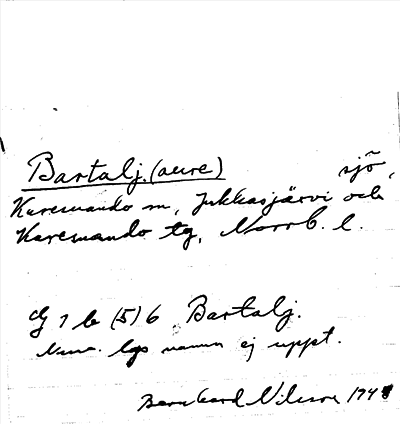 Bartalj. (aure) sjö,
Karesuando sn, Jukkasjärvi och
Karesuando tg, Norrb. l.
7 b (5) 6 Bartalj.
namn ej uppt.
Bernhard Nilsson